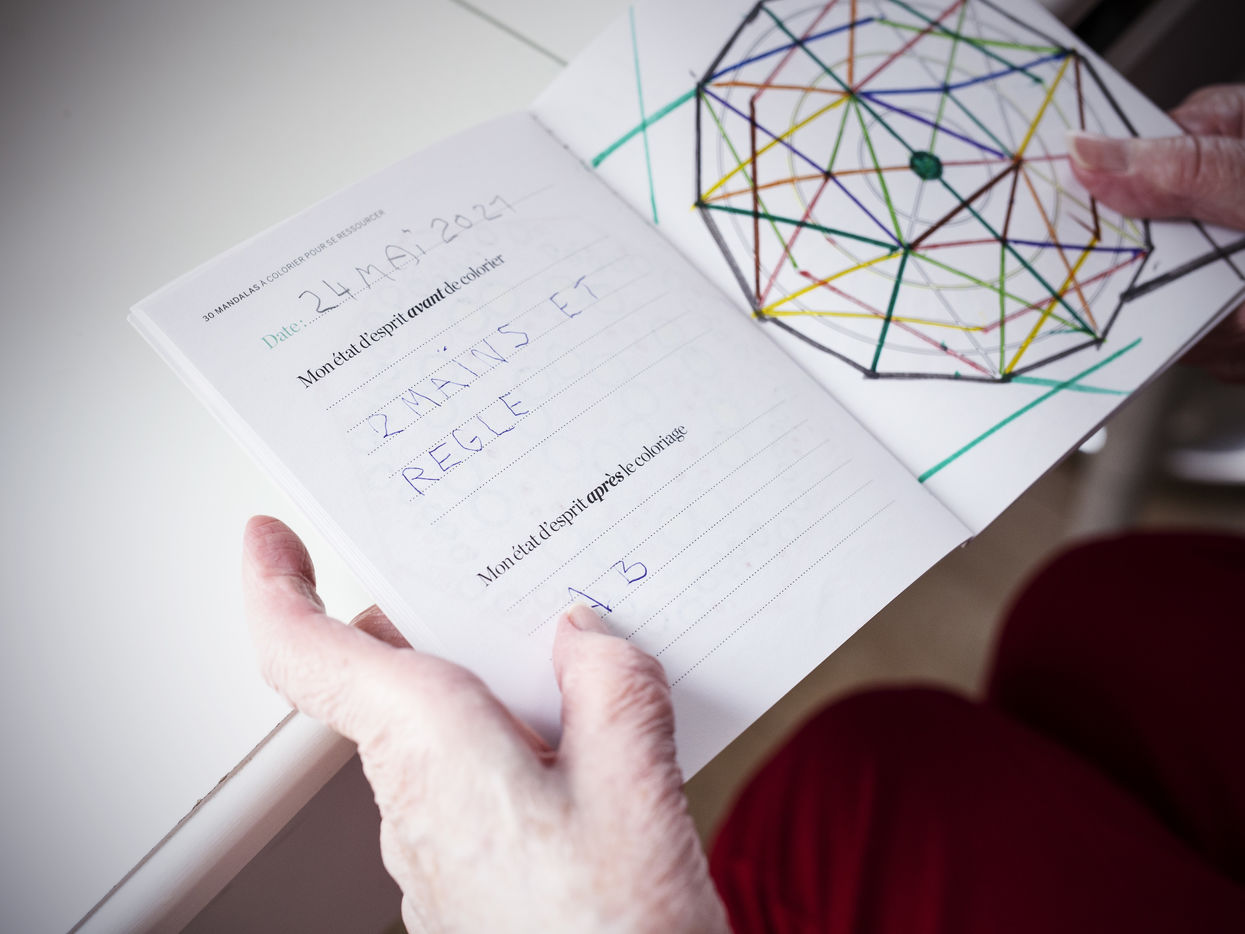 30 MANDALAS À COLORIER POUR SE RESSOURCER
Date : 24 MAÏ 2021
Mon état d'esprit avant de colorier
2 MAÏNS ET
REGLE
Mon état d'esprit après le coloriage
A B